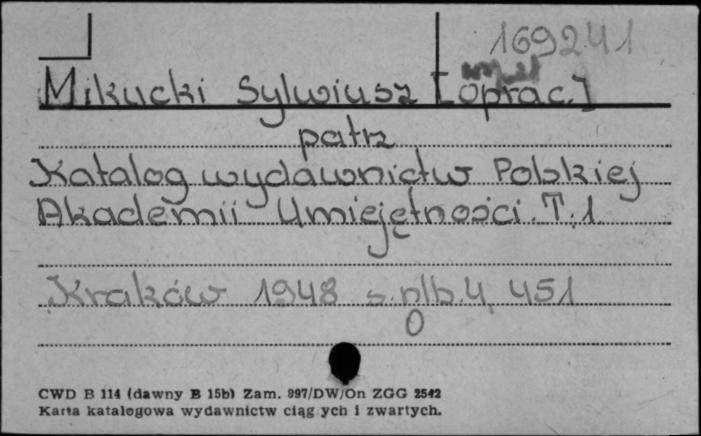 169241
Mikucki Sylwiusz [oprac.]
patrz
Katalog wydawnictw Polskiej
Akademii Umiejętności. T. 1.
Kraków 1948 s. nlb. 4, 451
0
CWD B 114 (dawny B 15b) Zam. 997/DW/On ZGG 2542
Karta katalogowa wydawnictw ciąg ych i zwartych.